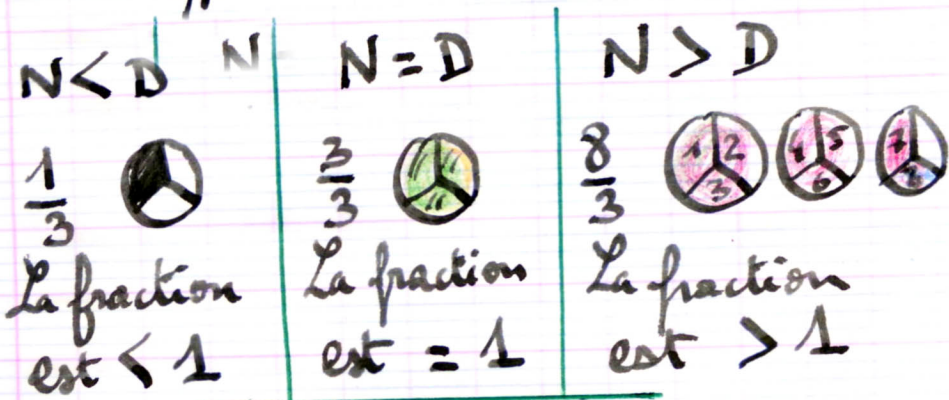 N < D
1/3
La fraction
est < 1
N
N = D
3/3
La fraction
est = 1
N > D
8/3
1 2 3
4 5 6
7 8
La fraction
est > 1